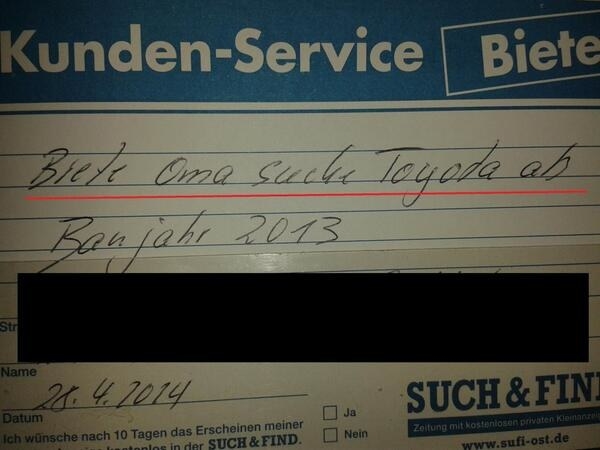 Kunden-Service Biete
Biete Oma suche Toyoda ab
Baujahr 2013
Str
Name
28.4.2014
Datum
Ja
Nein
Ich wünsche nach 10 Tagen das Erscheinen meiner
kostenlos in der SUCH & FIND.
SUCH & FIND
Zeitung mit kostenlosen privaten Kleinanzeig
www.sufi-ost.de